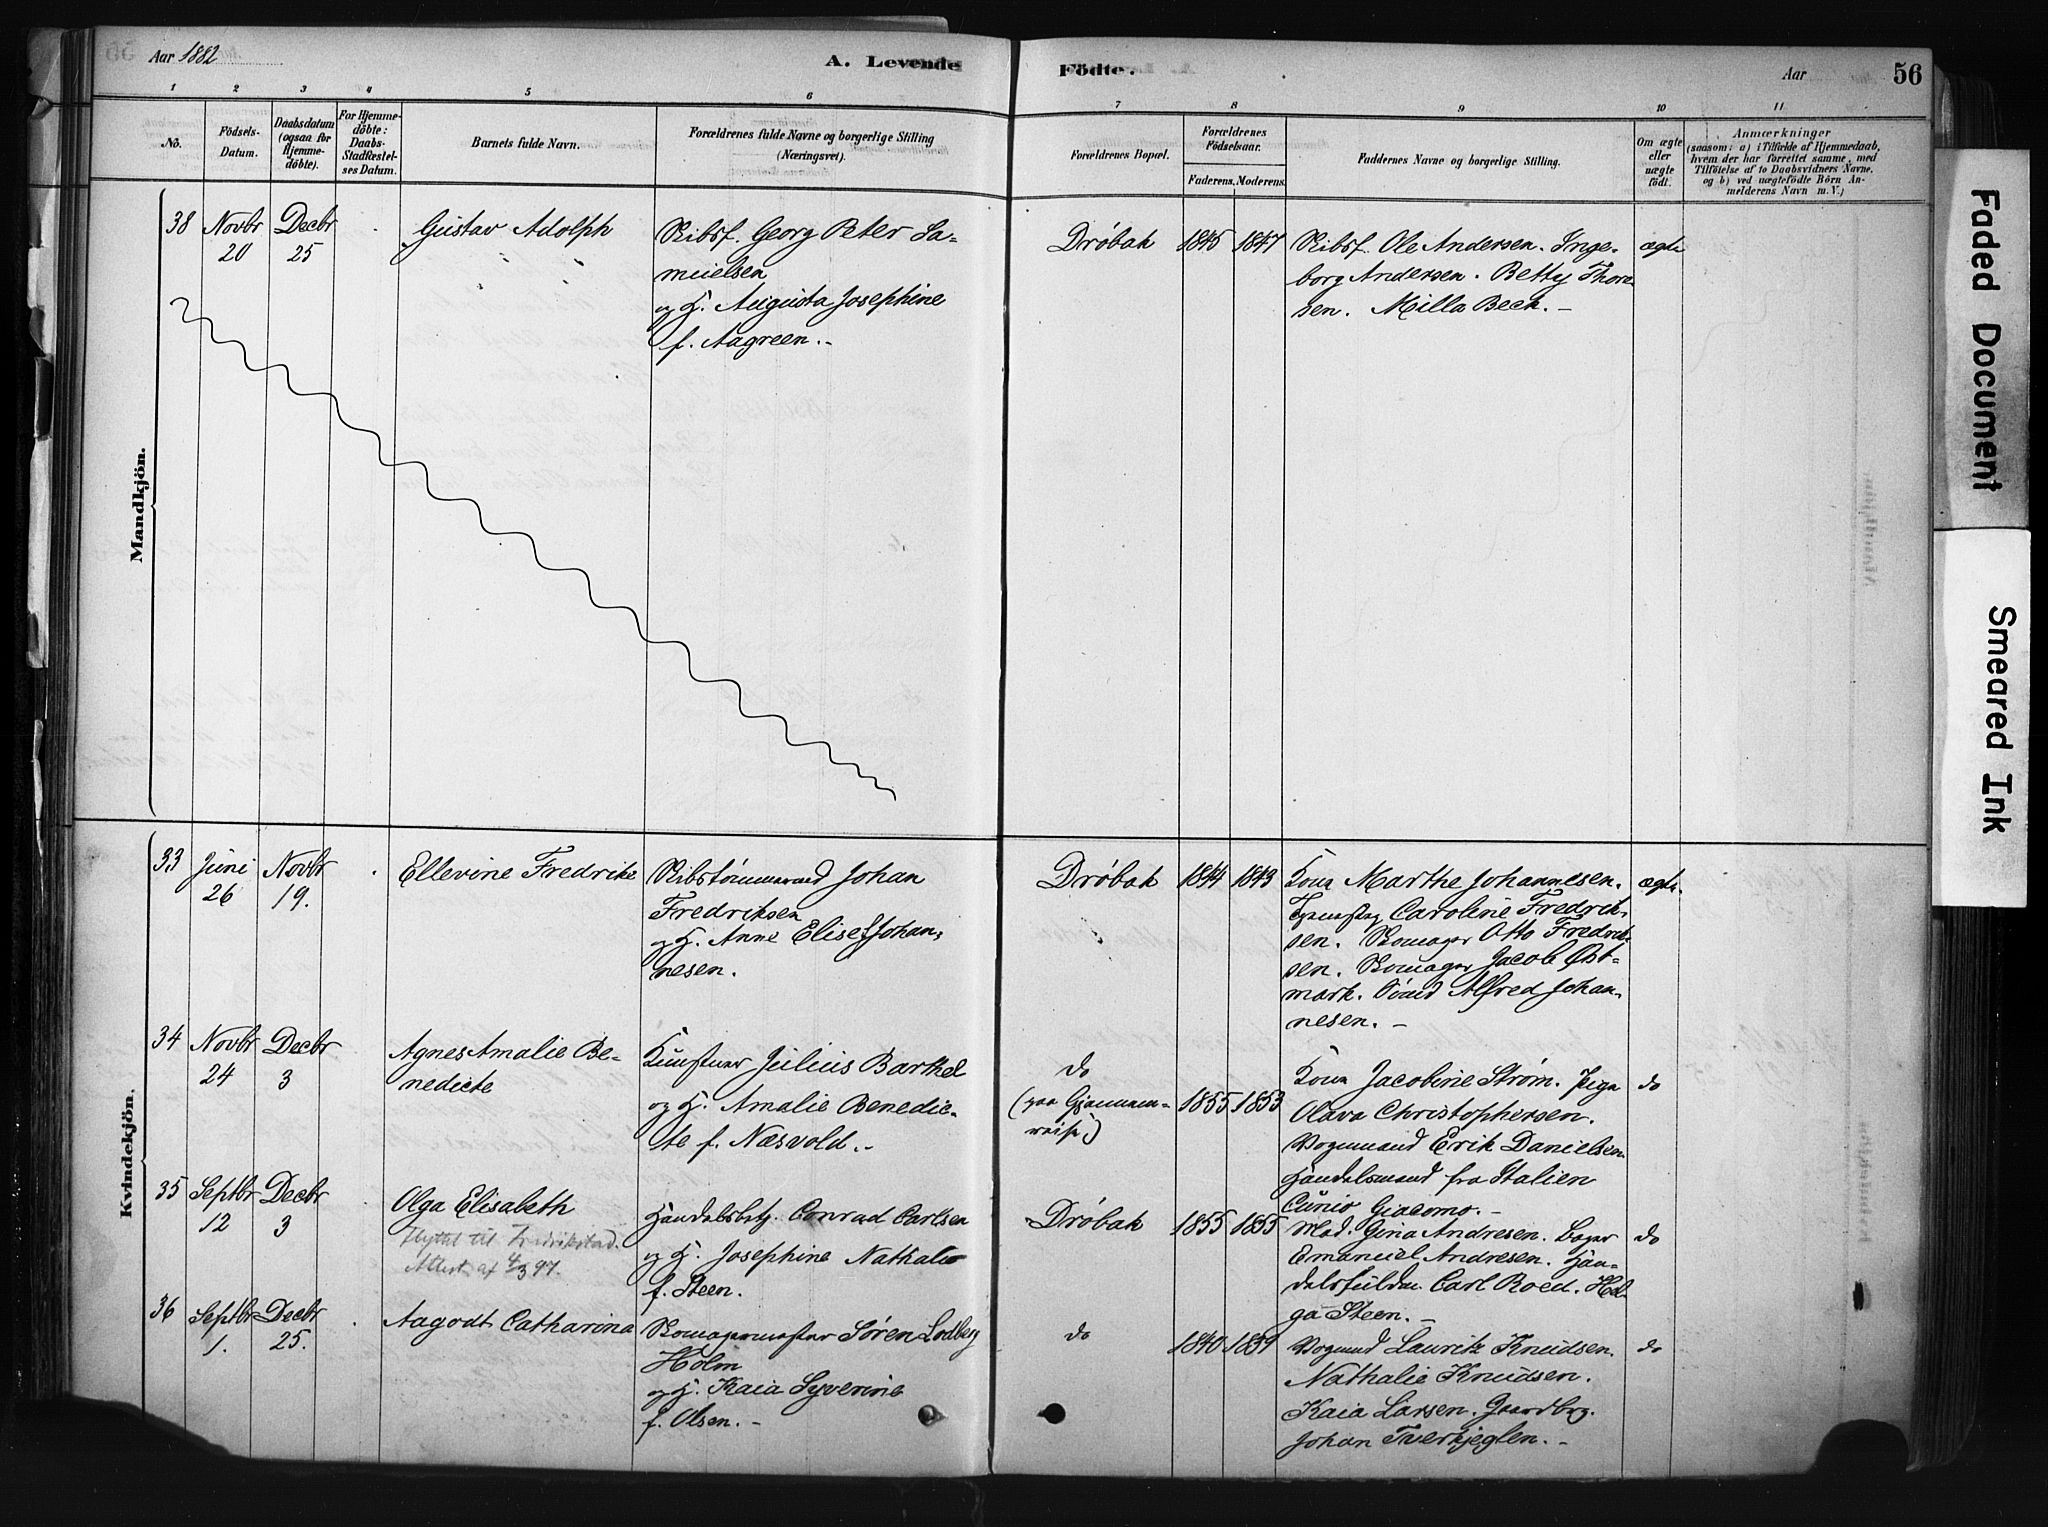 Aar 1882
A. Levende
Födte.
Aar
56
1 2 3 4 5 6 7 8 9 10 11
No.
Födsels-
Datum.
Daabsdatum
(ogsaa for
Hjemme-
döbte).
For Hjemme-
döbte:
Daabs-
Stadfæstel-
ses Datum.
Barnets fulde Navn.
Forældrenes fulde Navne og borgerlige Stilling
(Næringsvei).
Forældrenes Bopæl.
Forældrenes
Födselsaar.
Faderens. Moderens.
Faddernes Navne og borgerlige Stilling.
Om ægte
eller
uægte
födt.
Anmærkninger
(saasom: a) i Tilfælde af Hjemmedaab,
hvem der har forrettet samme, med
Tilföielse af to Daabsvidners Navne.
og b) ved uægtefödte Börn An-
melderens Navn m. V.)
Mandkjön.
38
Novbr
20
Decbr
25
Gustav Adolph
Skibsf. Georg Peter Sa-
muelsen
og H. Augusta Josephine
f. Aagreen.
Drøbak
1845
1847
Skibsf. Ole Andersen. Inge-
borg Andersen. Betty Thore-
sen. Milla Beck.
ægte
Kvindekjön.
33
Juni
26
Novbr
19.
Ellevine Fredrike
Skibstømmermd Johan
Fredriksen
og H. Anne Elise f. Johan-
nesen.
Drøbak
1844
1843
Kone Marthe Johannesen.
Caroline Fredrik-
sen. Skomager Otto Fredrik-
sen. Skomager Jacob Øst-
mark. Sömd Alfred Johan-
nesen.
ægte
34
Novbr
24
Decbr
3
Agnes Amalie Be-
nedicte
Kunstner Julius Barthel
og H. Amalie Benedic-
te f. Næsvold.
do
(paa Gjennem-
reise)
1855
1853
Kone Jacobine Strøm. Pige
Olava Christophersen.
Vognmand Erik Danielsen.
Handelsmand fra Italien
Cunio Giacomo.
do
35
Septbr
12
Decbr
3
Olga Elisabeth
Flyttet til Fredrikstad.
Attest af 4/3 97.
Handelsbetj. Conrad Carlsen
og H. Josephine Nathalie
f. Steen.
Drøbak
1855
1855
Mad. Gina Andresen. Bager
Emanuel Andresen. Han-
delsfuldm. Carl Roed. Hel-
ga Steen.
do
36
Septbr
1.
Decbr
25.
Aagodt Catharina
Skomagermester Søren Lodberg
Holm
og H. Kaia Syverine
f. Olsen.
do
1840
1839
Vognmd Lauritz Knudsen.
Nathalie Knudsen.
Kaia Larsen. Gaardbrg.
Johan Tverkjeglen.
do
Faded Document
Smeared Ink